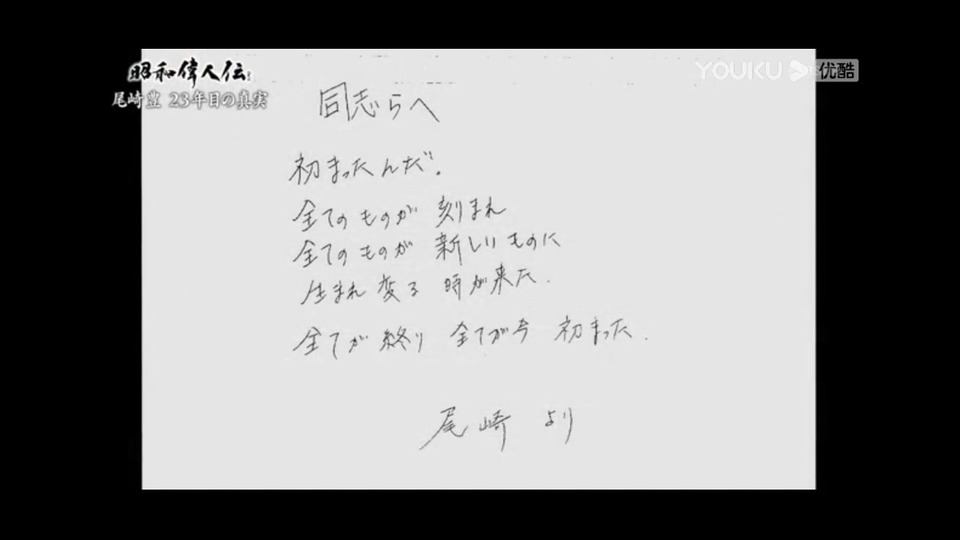 昭和偉人伝
尾崎豊 23年目の真実
YOUKU 优酷
同志らへ
初まったんだ。
全てのものが 刻まれ
全てのものが 新しいものに
生まれ変る 時が来た.
全てが終り 全てが今 初まった.
尾崎 より